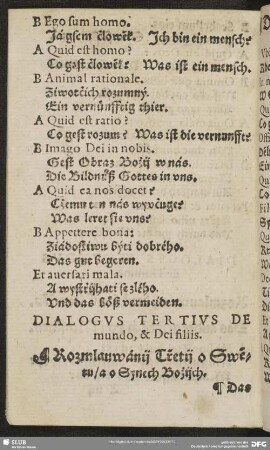 B Ego sum homo.
Já gsem člowěk. Jch bin ein mensch?
A Quid est homo?
Co gest člowěk? Was ist ein mensch.
B Animal rationale.
Žiwočich rozumný.
Ein vernünfftig thier.
A Quid est ratio?
Co gest rozum? Was ist die vernunfft?
B Imago Dei in nobis.
Gest Obraz Božij w nás.
Die Bildnüß Gottes in vns.
A Quid ea nos docet?
Cžemu ten nás wyučuge?
Was leret sie vns?
B Appetere bona:
Žiádostiwu býti dobrého.
Das gut begeren.
Et auersari mala.
A wystřijhati se zlého.
Vnd das böß vermeiden.
DIALOGVS TERTIVS DE
mundo, & Dei filiis.
¶ Rozmlauwánij Třetij o Swě-
tu/ a o Synech Božijch.
¶ Das
SLUB